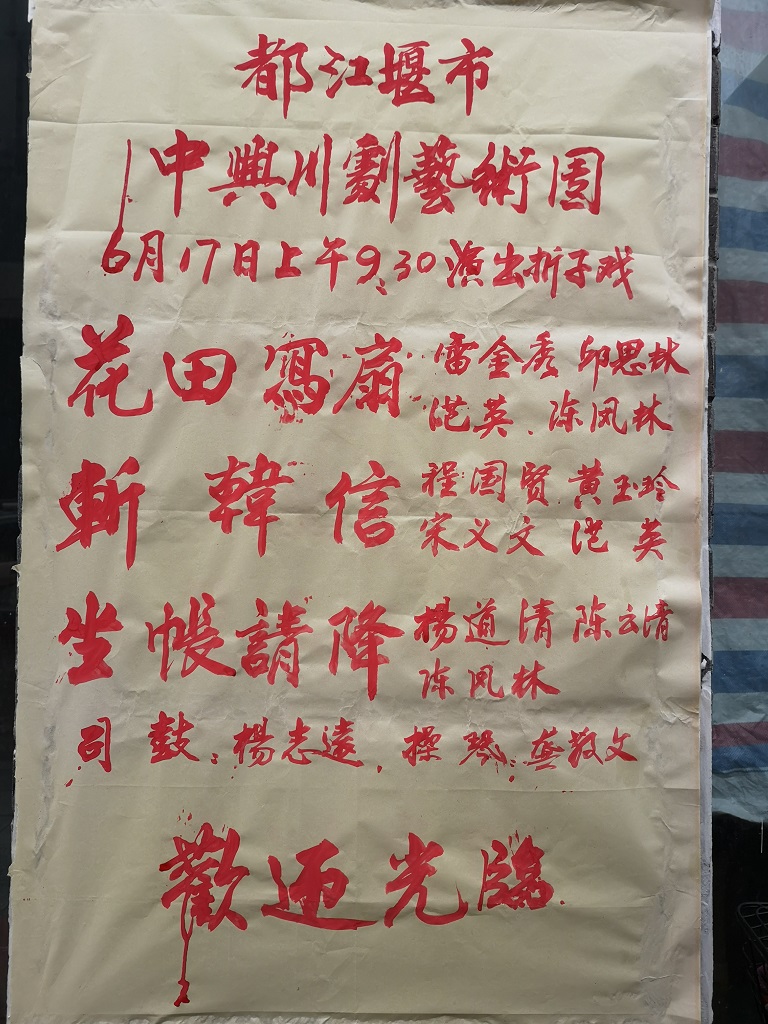 都江堰市
中興川劇藝術团
6月17日上午9:30演出折子戏
花田寫扇 雷金秀 邱思林
范英、陈凤林
斬韓信 程国贤 黄玉玲
宋义文 范英
坐帳請降 楊道清 陈云清
陈凤林
司鼓:楊志遠,操琴:龚敬文
歡迎光臨